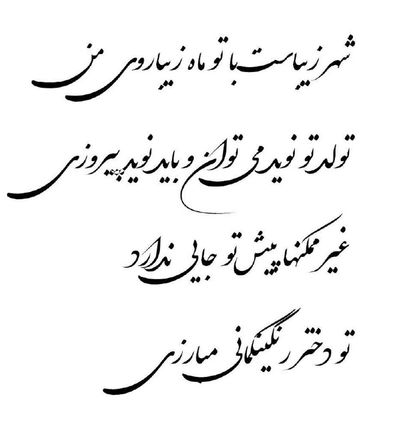 شهر زیباست با تو ماه زیباروی من
تولد تو نوید می توان و باید نوید پیروزی
غیر ممکنها پیش تو جایی ندارد
تو دختر رنگینکمانی مبارزی